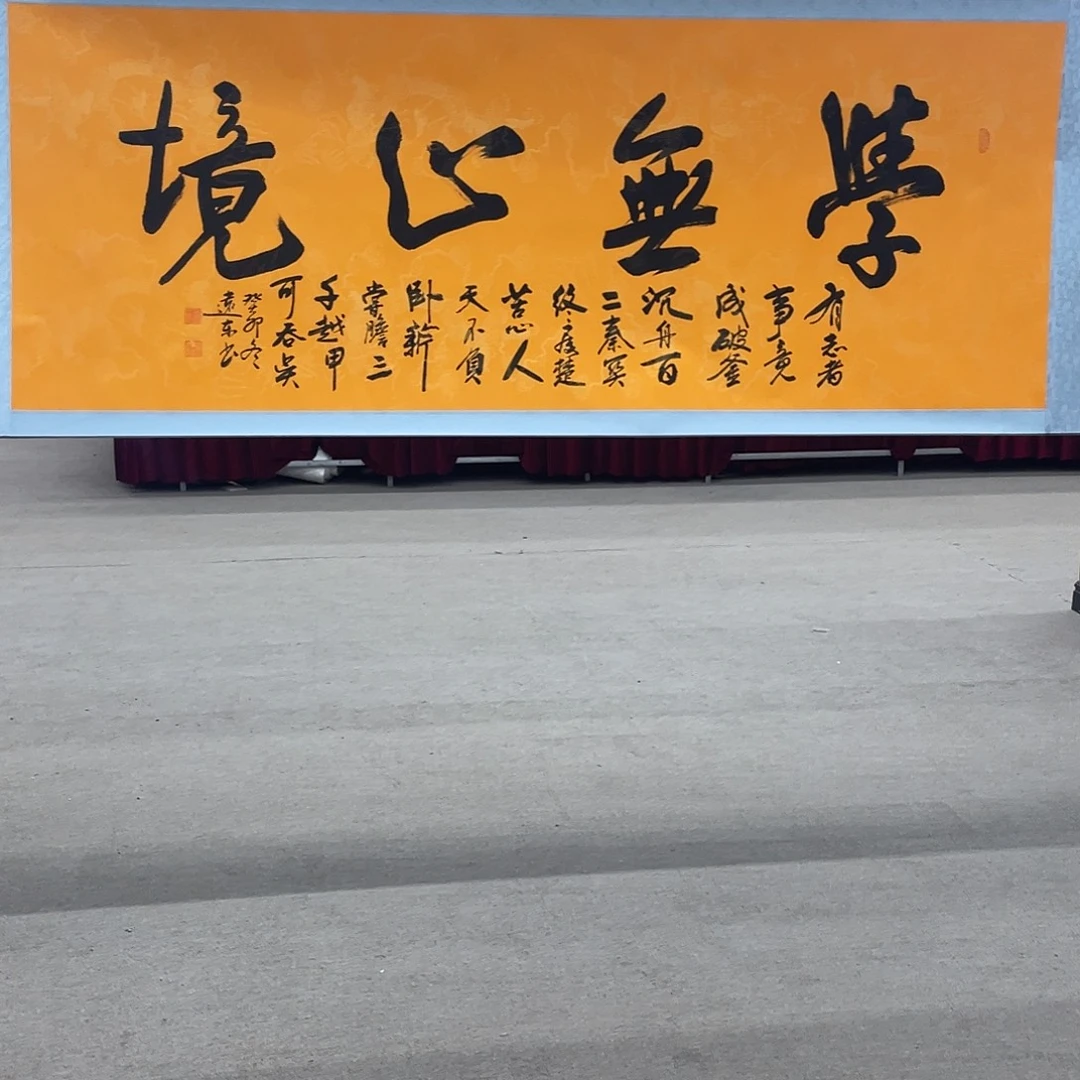 學無止境
有志者
事竟
成破釜
沉舟百
二秦关
终属楚
苦心人
天不負
卧薪
嘗膽三
千越甲
可吞吴
癸卯冬
遠东书